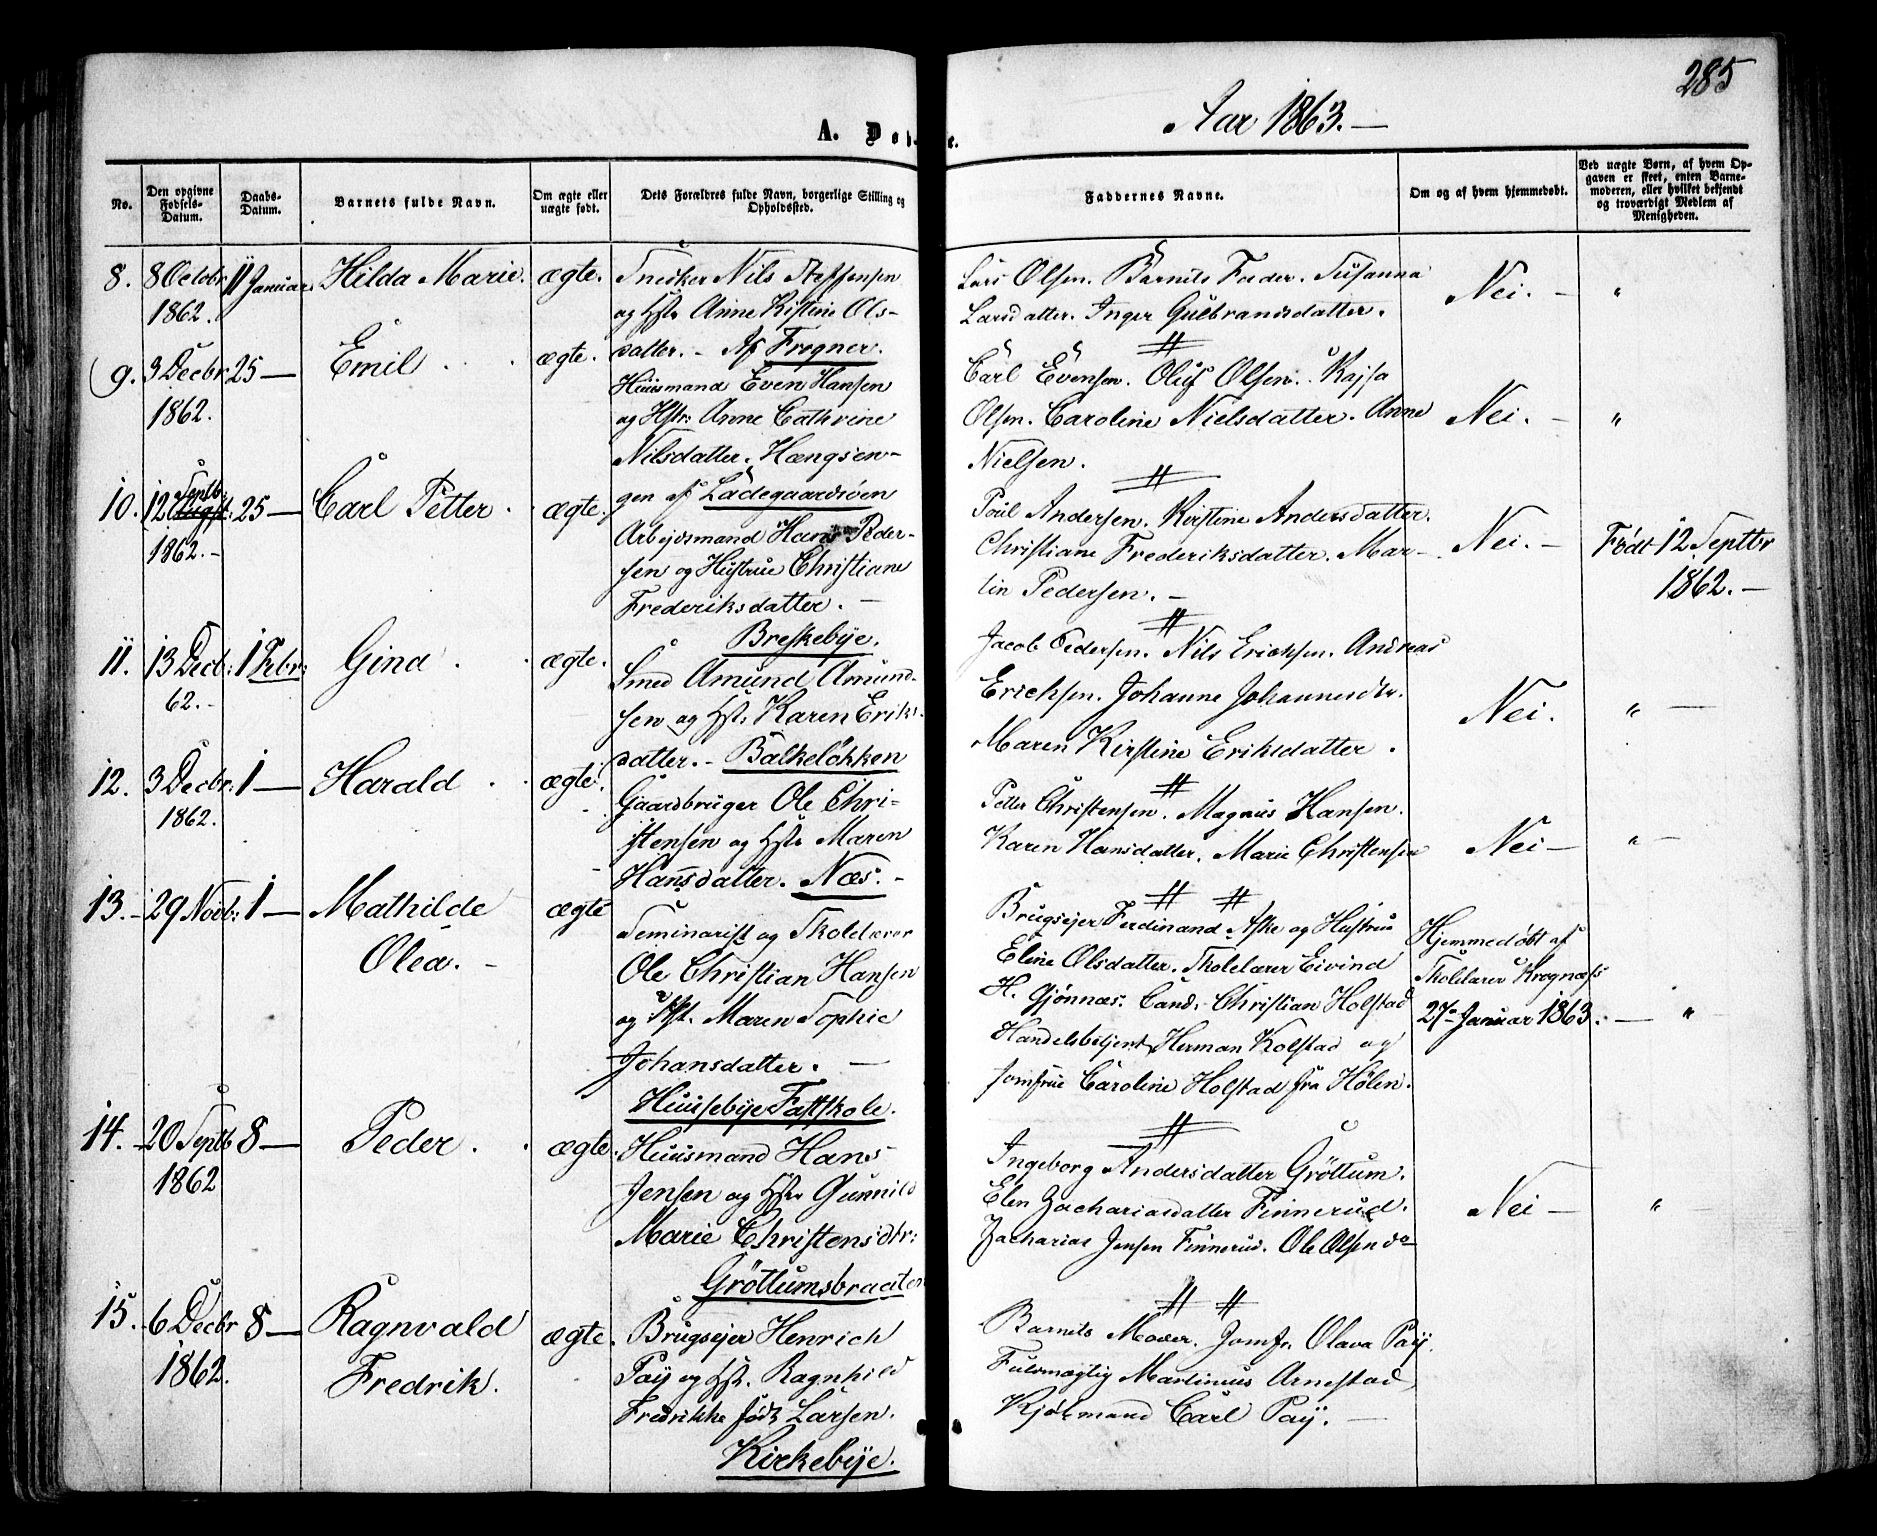 285
Aar 1863.—
A. Dob
e.
No.
Den opgivne Fødsels-Datum.
Daabs-Datum.
Barnets fulde Navn.
Om ægte eller uægte født.
Dets Forældres fulde Navn, borgerlige Stilling og Opholdssted.
Faddernes Navne.
Om og af hvem hjemmedøbt.
Ved uægte Børn, af hvem Opgaven er skeet, enten Barnemoderen, eller hvilket bekjendt og troværdigt Medlem af Menigheden.
8.
8 Octobr
1862.
11 Januar
Hilda Marie.
ægte.
Snedker Nils Steffensen
og Hst. Anne Kistine Ols-
datter. - Af Frogner.
Lars Olsen. Barnets Fader. Susanna
Larsdatter. Inger Gulbrandsdatter.
Nei. —
"
9.
3 Decbr
1862.
25 —
Emil.
ægte.
Huusmand Even Hansen
og Hstr: Anne Cathrine
Nilsdatter. Hængsen-
gen af Ladegaardsøen
Carl Evensen. Oluf Olsen. Kajsa
Olsen. Caroline Nielsdatter. Anne
Nielsen.
Nei. —
"
10.
12 Septb:
1862. -
25 —
Carl Petter.
ægte.
Arbejdsmand Hans Peder-
sen og Hustrue Christiane
Frederiksdatter. —
Breskebye.
Poul Andersen. Kirstine Andersdatter.
Christiane Frederiksdatter. Mar-
tin Pedersen. -
Nei. -
Født 12 Septbr
1862. -
11.
13 Decb:
62. -
1 Febr:
Gina.
ægte.
Smed Amund Amund-
sen og Hst. Karen Eriks-
datter. - Balkeløkken
Jacob Pedersen. Nils Erichsen. Andreas
Erichsen. Johanne Johannesdtr.
Maren Kirstine Eriksdatter.
Nei.
" —
12.
3 Decbr:
1862.
1 —
Harald.
ægte.
Gaardbruger Ole Chri-
stensen og Hst. Maren
Hansdatter. Næs. -
Petter Christensen. Magnus Hansen.
Karen Hansdatter. Marie Christensen
Nei —
" —
13. -
29 Novb:
1 —
Mathilde
Olea. -
ægte
Seminarist og Skolelærer
Ole Christian Hansen
og Hst. Maren Sophie
Johansdatter. —
Huusebye Fastskole.
Brugsejer Ferdinand Aske og Hustrue
Eline Olsdatter. Skolelærer Eivind
H. Gjønnæs. Cand. Christian Holstad
Handelsbetjent Herman Kolstad og
Jomfrue Caroline Holstad fra Hølen.
Hjemmedøbt af
Skolelærer Krognæss
27 Januar 1863. —
"
14. -
20 Septb
1862
8 —
Peder.
ægte.
Huusmand Hans
Jensen og Hstr Gunnild
Marie Christensdtr:
Grøttumsbraaten
Ingeborg Andersdatter Grøttum.
Elen Zachariasdatter Finnerud.
Zacharias Jensen Finnerud. Ole Olsen do
Nei —
"
15.
6 Decbr
1862.
8 —
Ragnvald
Fredrik.
ægte.
Brugsejer Henrich
Pay og Hst. Ragnhild
Fredrikke født Larsen.
Kirkebye.
Barnets Moder. Jomfr. Olava Pay.
Fuldmægtig Martinius Arnestad
Kjøbmand Carl Pay. —